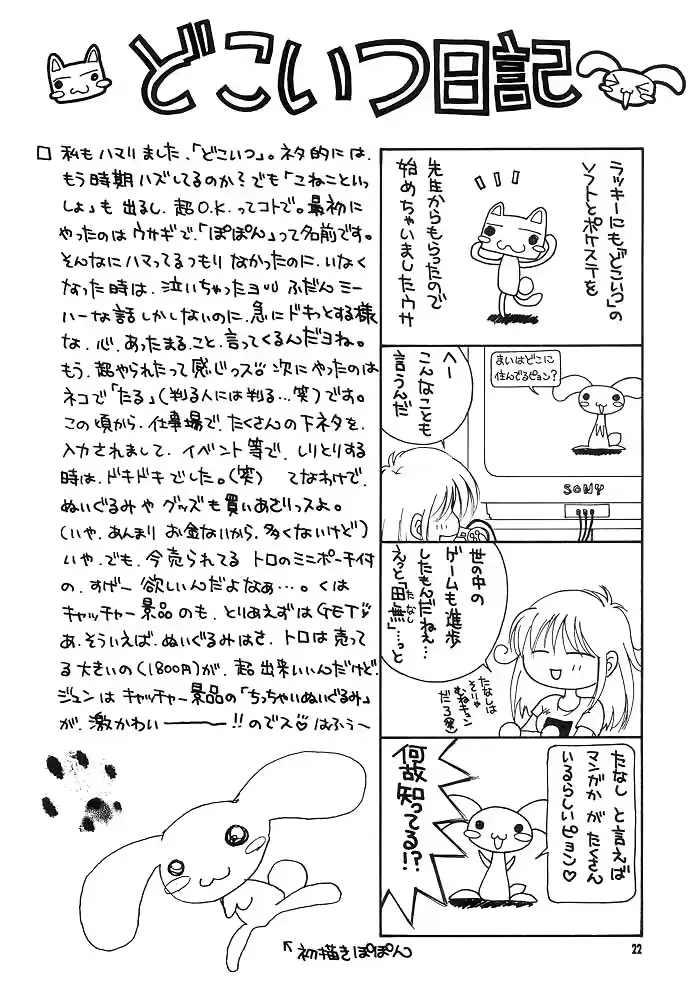 どこいつ日記
□ 私もハマリました、「どこいつ」。ネタ的には、
もう時期ハズしてるのか?でも「こねこといっ
しょ」も出るし、超O.K.ってコトで。最初に
やったのはウサギで、「ぽぽん」って名前です。
そんなにハマってるつもりなかったのに、いなく
なった時は、泣いちゃったヨ ふだんミー
ハーな話しかしないのに、急にドキっとする様
な、心、あったまること、言ってくるんだヨね。
もう、超やられたって感じっス 次にやったのは
ネコで「たる」(判る人には判る…笑)です。
この頃から、仕事場で、たくさんの下ネタを、
入力されまして、イベント等で、しりとりする
時は、ドキドキでした。(笑) てなわけで、
ぬいぐるみやグッズも買いあさりっスよ。
(いや、あんまりお金ないから、多くないけど)
いや、でも、今売られてるトロのミニポーチ付
の、すげー欲しいんだよなぁ…。くは
キャッチャー景品のも、とりあえずはGET♡
あ、そういえば、ぬいぐるみはさ、トロは売って
る大きいの(1800円)が、超出来いいんだけど、
ジュンはキャッチャー景品の「ちっちゃいぬいぐるみ」
が、激かわいー!!のでス♡はふぅ~
ラッキーにも「どこいつ」の
ソフトとポケステを
先生からもらったので
始めちゃいましたウサ
まいはどこに
住んでるピョン?
へー
こんなことも
言うんだ
SONY
世の中の
ゲームも進歩
したもんだねぇ…
えっと「田無」…っと
たなし
たなしは
そりゃ
むねキュン
だろ(笑)
たなし と言えば
マンガか が たくさん
いるらしいピョン♡
何故知ってる!?
↖初描きぽぽん
22